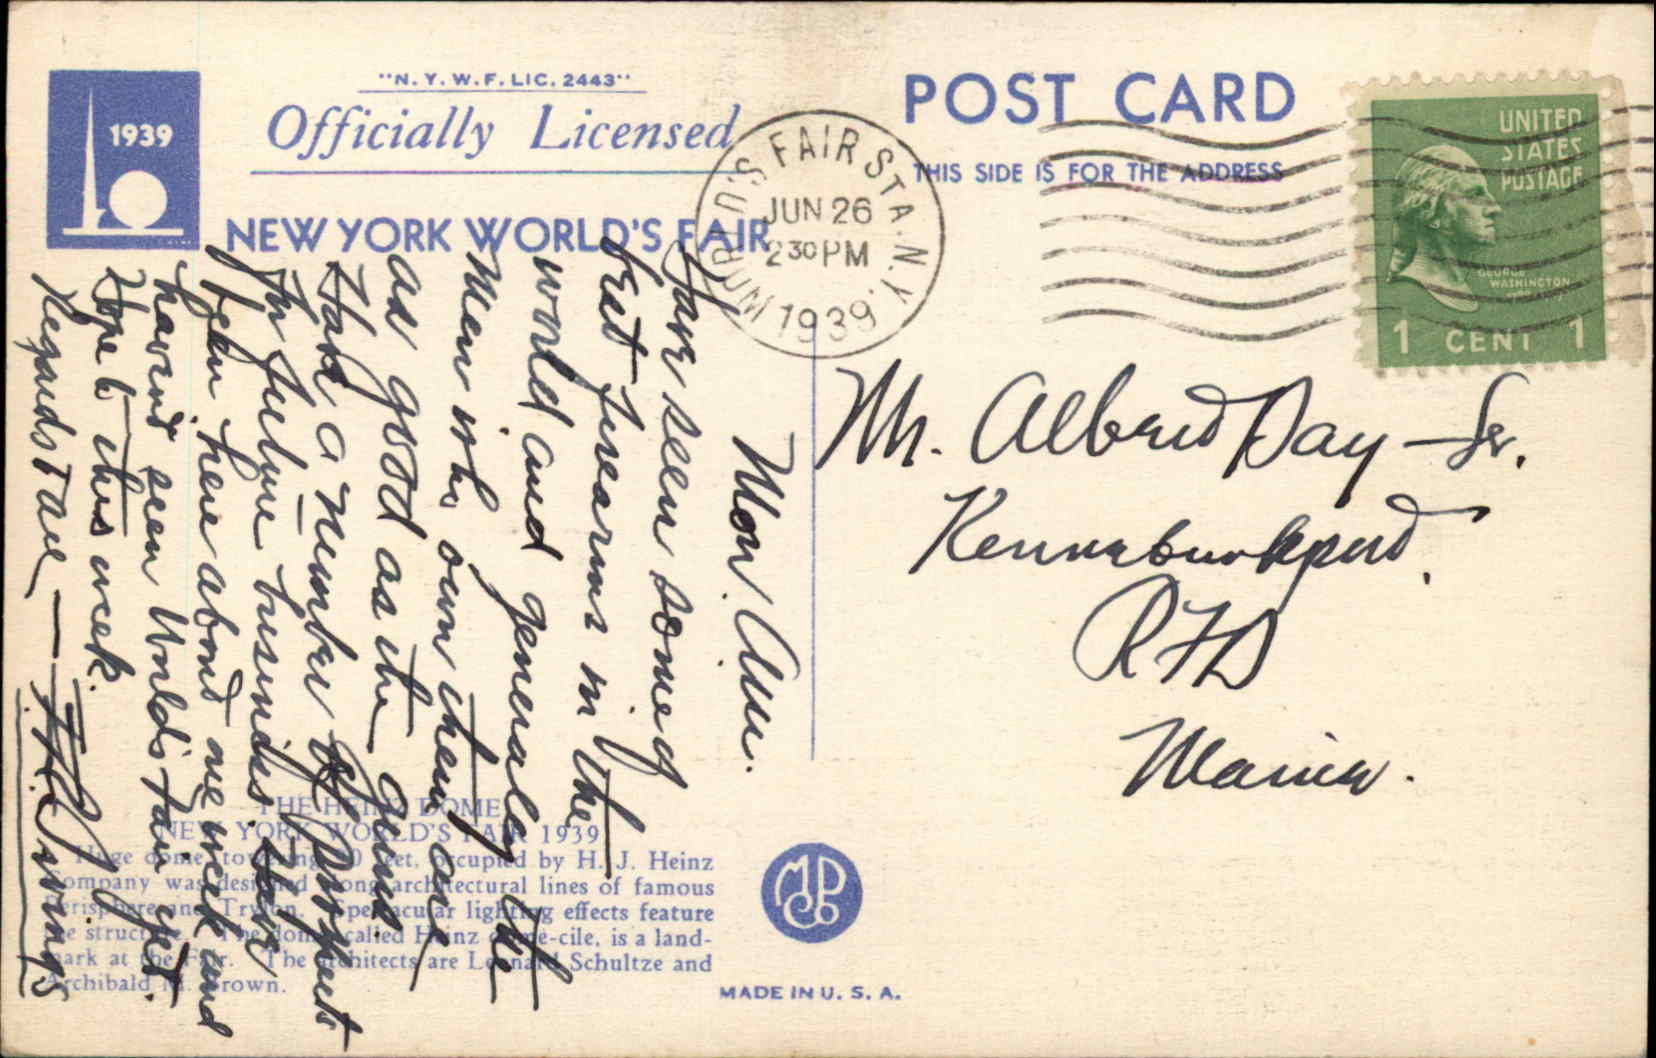 "N. Y. W. F. LIC. 2443"
Officially Licensed
1939
NEW YORK WORLD'S FAIR
POST CARD
THIS SIDE IS FOR THE ADDRESS
WORLD'S FAIR STA. N.Y.
JUN 26
2 30 PM
1939
UNITED
STATES
POSTAGE
GEORGE
WASHINGTON
1 CENT 1
Mr. Albert Day - Sr.
Kennebunkport,
RFD
Maine.
Mon.
Have seen some of
best in the
world and generally the
men who own them are
as good as the
Had a number of prospects
for future business. Have
been here about one week and
haven't seen World's Fair yet.
Hope to this week.
Regards to all —
THE HEINZ DOME
NEW YORK WORLD'S FAIR 1939
Huge dome, towering feet, occupied by H. J. Heinz
Company was designed along architectural lines of famous
Perisphere and Trylon. Spectacular lighting effects feature
the structure. The dome, called Heinz dome-cile, is a land-
mark at the Fair. The architects are Leonard Schultze and
Archibald M. Brown.
MADE IN U. S. A.